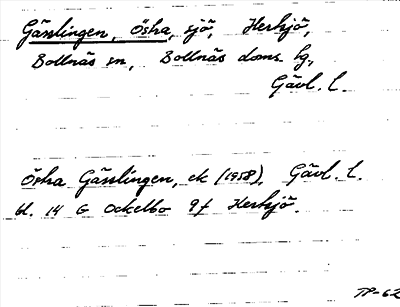 Gässlingen, Östra, sjö, Herhjö,
Bollnäs sn, Bollnäs doms. hg,
Gävl. l.
Östra Gässlingen, ek (1958), Gävl. l.
bl. 14 G Ockelbo 9f Herhjö.
TP-62